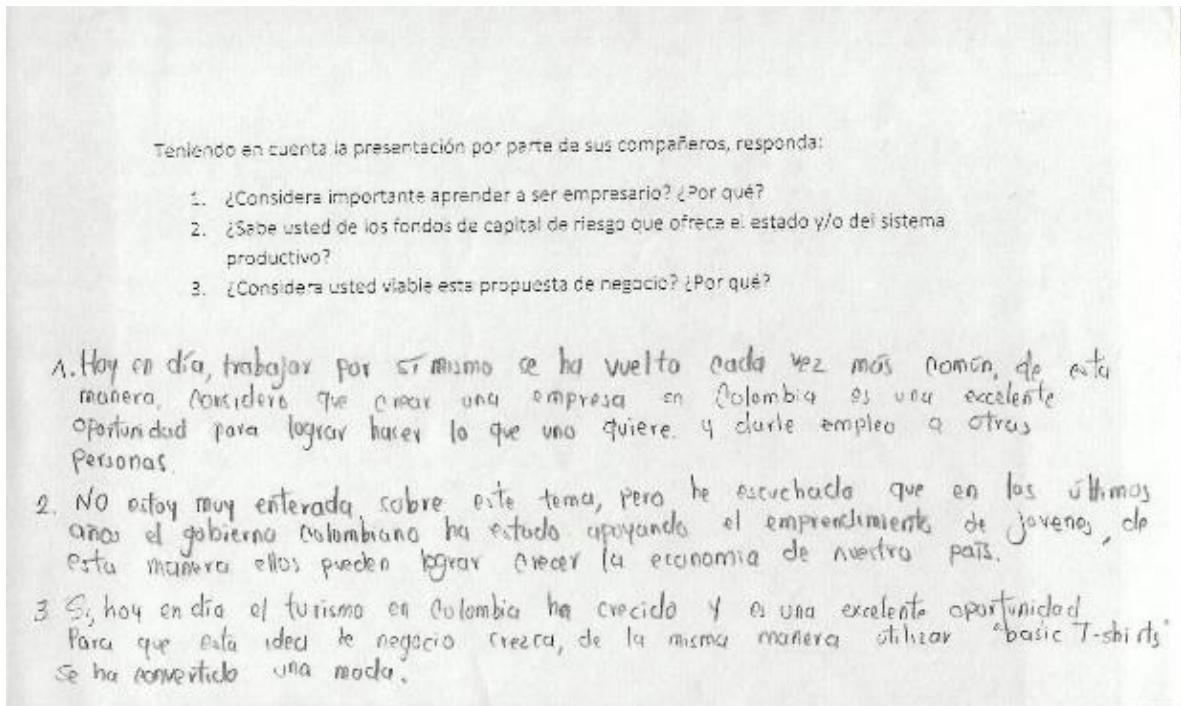 Teniendo en cuenta la presentación por parte de sus compañeros, responda:
1. ¿Considera importante aprender a ser empresario? ¿Por qué?
2. ¿Sabe usted de los fondos de capital de riesgo que ofrece el estado y/o del sistema
productivo?
3. ¿Considera usted viable esta propuesta de negocio? ¿Por qué?
1. Hoy en día, trabajar por sí mismo se ha vuelto cada vez más común, de esta
manera, considero que crear una empresa en Colombia es una excelente
oportunidad para lograr hacer lo que uno quiere. y darle empleo a otras
personas.
2. NO estoy muy enterada sobre este tema, pero he escuchado que en los últimos
años el gobierno colombiano ha estado apoyando el emprendimiento de jovenes, de
esta manera ellos pueden lograr crecer la economia de nuestro país.
3. Si, hoy en día el turismo en Colombia ha crecido y es una excelente oportunidad
Para que esta idea de negocio crezca, de la misma manera utilizar "basic T-shirts"
se ha convertido una moda.